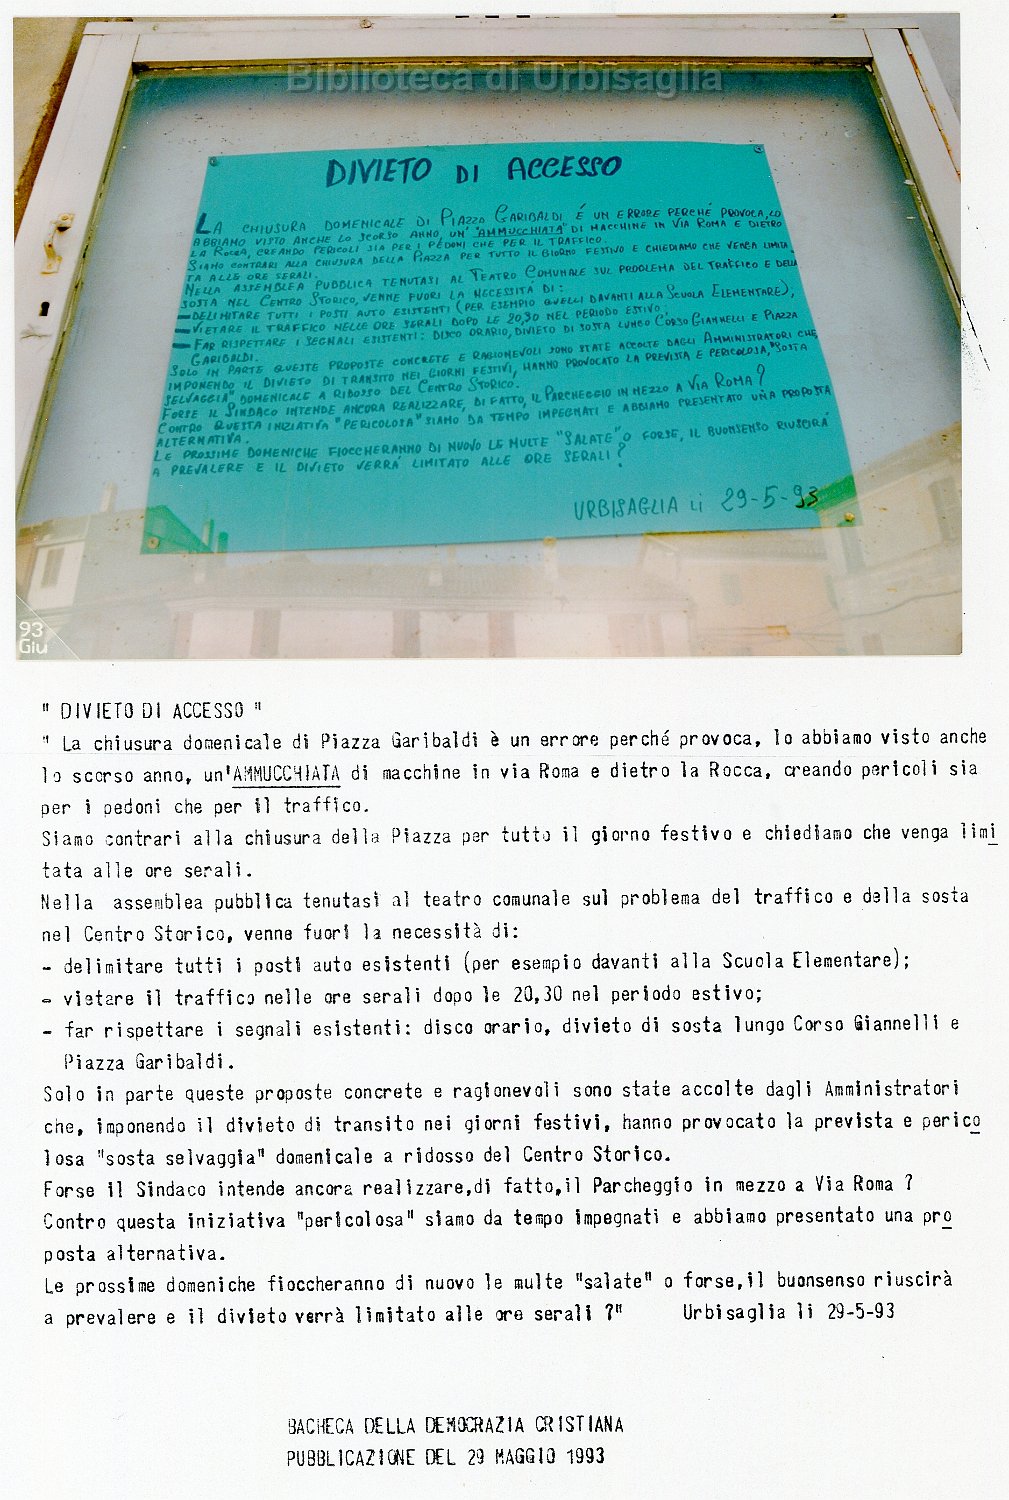 Biblioteca di Urbisaglia
DIVIETO DI ACCESSO
LA CHIUSURA DOMENICALE DI PIAZZA GARIBALDI É UN ERRORE PERCHÉ PROVOCA, LO
ABBIAMO VISTO ANCHE LO SCORSO ANNO, UN' "AMMUCCHIATA" DI MACCHINE IN VIA ROMA E DIETRO
LA ROCCA, CREANDO PERICOLI SIA PER I PEDONI CHE PER IL TRAFFICO.
SIAMO CONTRARI ALLA CHIUSURA DELLA PIAZZA PER TUTTO IL GIORNO FESTIVO E CHIEDIAMO CHE VENGA LIMITA
TA ALLE ORE SERALI.
NELLA ASSEMBLEA PUBBLICA TENUTASI AL TEATRO COMUNALE SUL PROBLEMA DEL TRAFFICO E DELLA
SOSTA NEL CENTRO STORICO, VENNE FUORI LA NECESSITÀ DI:
- DELIMITARE TUTTI I POSTI AUTO ESISTENTI (PER ESEMPIO QUELLI DAVANTI ALLA SCUOLA ELEMENTARE);
- VIETARE IL TRAFFICO NELLE ORE SERALI DOPO LE 20,30 NEL PERIODO ESTIVO;
- FAR RISPETTARE I SEGNALI ESISTENTI: DISCO ORARIO, DIVIETO DI SOSTA LUNGO CORSO GIANNELLI E PIAZZA
GARIBALDI.
SOLO IN PARTE QUESTE PROPOSTE CONCRETE E RAGIONEVOLI SONO STATE ACCOLTE DAGLI AMMINISTRATORI CHE,
IMPONENDO IL DIVIETO DI TRANSITO NEI GIORNI FESTIVI, HANNO PROVOCATO LA PREVISTA E PERICOLOSA, "SOSTA
SELVAGGIA" DOMENICALE A RIDOSSO DEL CENTRO STORICO.
FORSE IL SINDACO INTENDE ANCORA REALIZZARE, DI FATTO, IL PARCHEGGIO IN MEZZO A VIA ROMA?
CONTRO QUESTA INIZIATIVA "PERICOLOSA" SIAMO DA TEMPO IMPEGNATI E ABBIAMO PRESENTATO UNA PROPOSTA
ALTERNATIVA.
LE PROSSIME DOMENICHE FIOCCHERANNO DI NUOVO LE MULTE "SALATE" O FORSE, IL BUONSENSO RIUSCIRÀ
A PREVALERE E IL DIVIETO VERRÀ LIMITATO ALLE ORE SERALI?
URBISAGLIA LI 29-5-93
93
Giu
" DIVIETO DI ACCESSO "
" La chiusura domenicale di Piazza Garibaldi è un errore perché provoca, lo abbiamo visto anche
lo scorso anno, un'AMMUCCHIATA di macchine in via Roma e dietro la Rocca, creando pericoli sia
per i pedoni che per il traffico.
Siamo contrari alla chiusura della Piazza per tutto il giorno festivo e chiediamo che venga limi
tata alle ore serali.
Nella assemblea pubblica tenutasi al teatro comunale sul problema del traffico e della sosta
nel Centro Storico, venne fuori la necessità di:
- delimitare tutti i posti auto esistenti (per esempio davanti alla Scuola Elementare);
- vietare il traffico nelle ore serali dopo le 20,30 nel periodo estivo;
- far rispettare i segnali esistenti: disco orario, divieto di sosta lungo Corso Giannelli e
Piazza Garibaldi.
Solo in parte queste proposte concrete e ragionevoli sono state accolte dagli Amministratori
che, imponendo il divieto di transito nei giorni festivi, hanno provocato la prevista e perico
losa "sosta selvaggia" domenicale a ridosso del Centro Storico.
Forse il Sindaco intende ancora realizzare,di fatto,il Parcheggio in mezzo a Via Roma ?
Contro questa iniziativa "pericolosa" siamo da tempo impegnati e abbiamo presentato una pro
posta alternativa.
Le prossime domeniche fioccheranno di nuovo le multe "salate" o forse,il buonsenso riuscirà
a prevalere e il divieto verrà limitato alle ore serali ?" Urbisaglia li 29-5-93
BACHECA DELLA DEMOCRAZIA CRISTIANA
PUBBLICAZIONE DEL 29 MAGGIO 1993